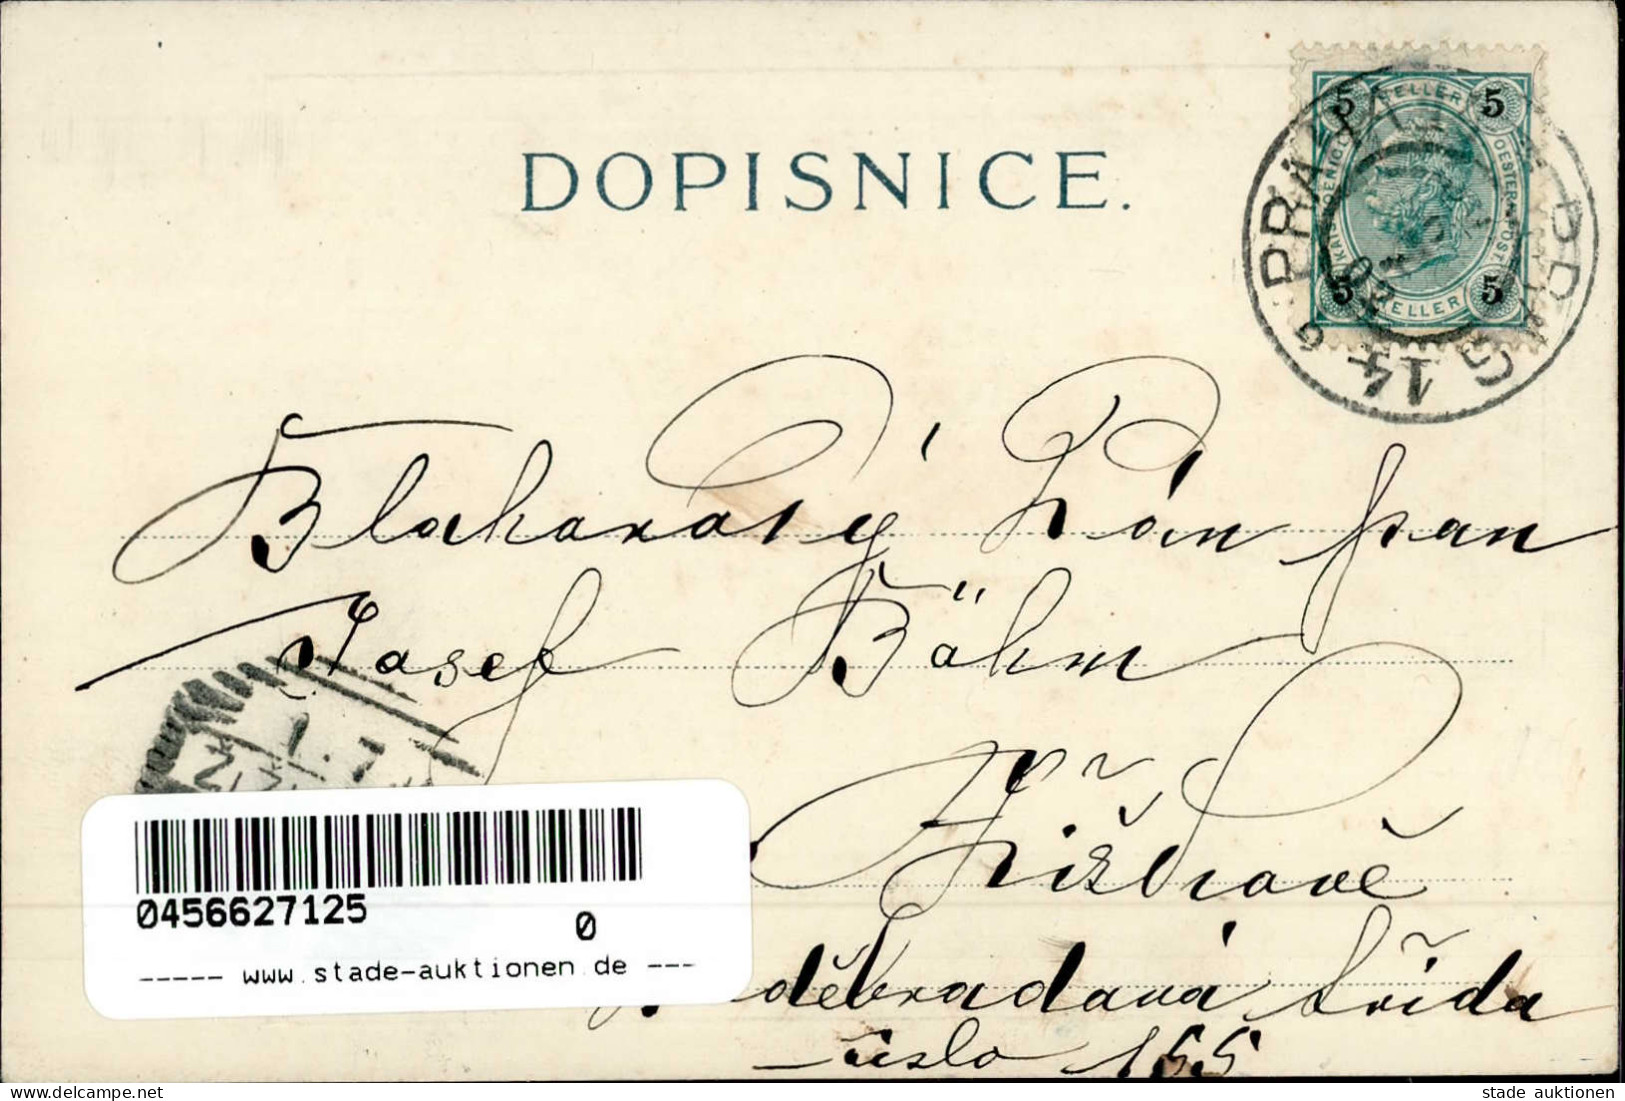 DOPISNICE.
5 HELLER 5
KAIS. KOENIGL. OESTERR. POST.
5 HELLER 5
PRAHA PRAG
14
Blahorodý Pán pan
Josef Böhm
Žižkově
Poděbradová třída
číslo 155
1. 7
0456627125
0
----- www.stade-auktionen.de ---
stade auktionen